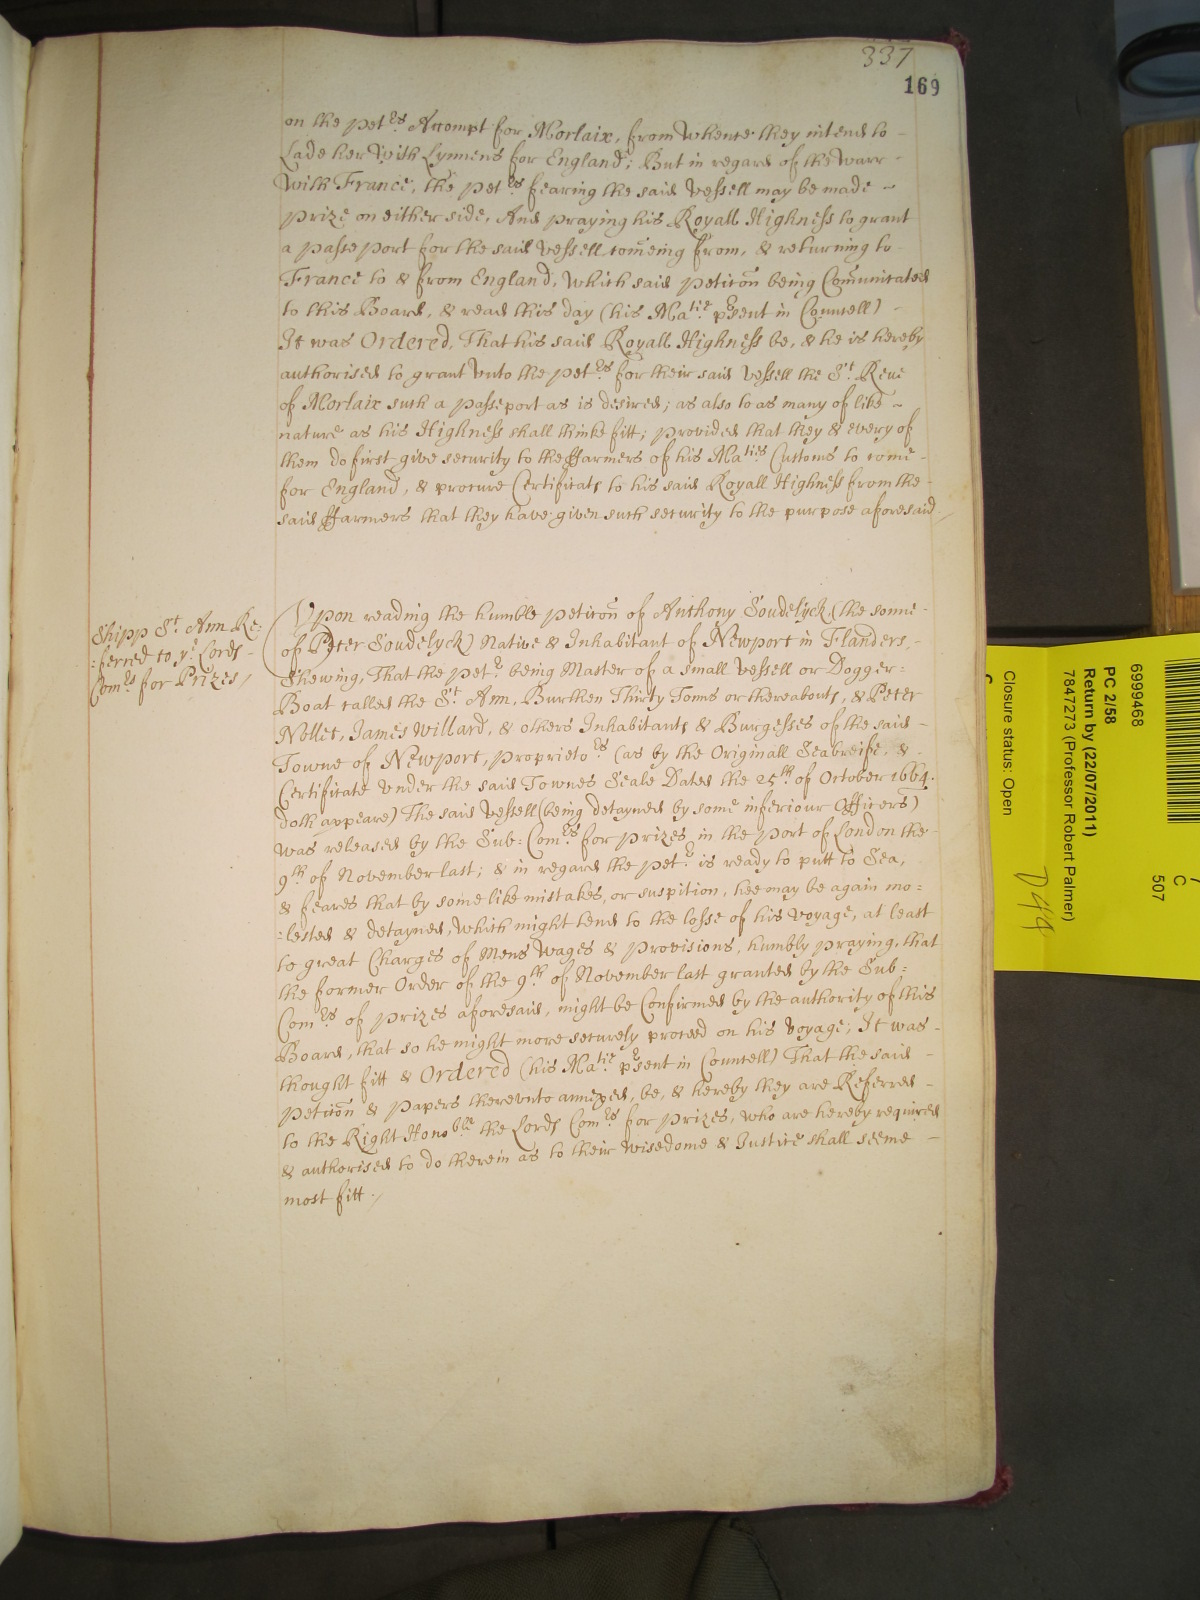 337
169
on the pet.rs Accompt for Morlaix, from whence they intend to -
Lade her with Lynnens for England; But in regard of the warr -
with France, the pet.rs fearing the said vessell may be made ~
prize on either side, And praying his Royall Highness to grant
a passeport for the said vessell, com̄eing from, & returning to -
France to & from England, which said peticōn being Com̄unicated
to this Board, & read this day (his Ma.tie p̲sent in Councell) -
It was Ordered, That his said Royall Highness be, & he is hereby
authorised to grant vnto the pet.rs for their said vessell the S.t Rene
of Morlaix such a passeport as is desired; as also to as many of like ~
nature as his Highness shall thinke fitt; provided that they & every of
them do first give security to the ffarmers of his Ma.ties Customs to come -
for England, & procure Certificats to his said Royall Highness from the -
said ffarmers that they have given such security to the purpose aforesaid./
Shipp S.t Ann Re=
=ferred to y.e Lords -
Com.rs for Prizes /
Vpon reading the humble peticōn of Anthony Soudelyck (the sonne -
of Peter Soudelyck) Native & Inhabitant of Newport in Flanders, -
Shewing, That the pet.r being Master of a small vessell or Dogger=
Boat called the S.t Ann, Burthen Thirty Tonns or thereabouts, & Peter
Nollet, James Willard, & others Inhabitants & Burgesses of the said -
Towne of Newport, Proprieto.rs (as by the Originall Seabreife, & -
Certificate vnder the said Townes Seale Dated the 25.th of October 1664.
doth appeare) The said vessell (being detayned by some inferiour Officers)
was released by the Sub=Com.rs for prizes in the port of London the -
9.th of November last; & in regard the pet.r is ready to putt to Sea,
& feares that by some like mistakes, or suspition, hee may be again mo=
=lested & detayned, which might tend to the losse of his voyage, at least
to great Charges of Mens wages & Provisions, humbly praying, that
the former Order of the 9.th of November last granted by the Sub=
Com.rs of prizes aforesaid, might be Confirmed by the authority of this
Board, that so he might more securely proceed on his voyage; It was -
thought fitt & Ordered (his Ma.tie p̲sent in Councell) That the said -
peticōn & papers therevnto annexed, be, & hereby they are Referred -
to the Right Hono.ble the Lords Com.rs for prizes, who are hereby required
& authorised to do therein as to their wisedome & Justice shall seeme -
most fitt./
6999468
PC 2/58
Return by (22/07/2011)
7847273 (Professor Robert Palmer)
Closure status: Open
C
507
D49